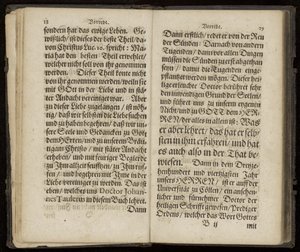 18 Vorrede.
sondern hat das ewige Leben. Ge-
wißlich / ist dieses der beste Theil / da-
von Christus Luc. 10. spricht: Ma-
ria hat den besten Theil erwehlet /
welcher nicht soll von ihr genommen
werden. Dieser Theil konte nicht
von ihr genommen werden / weiln sie
mit GOtt in der Liebe und in stä-
ter Andacht vereiniget war. Aber
zu dieser Liebe zugelangen / ist nöh-
tig / daß wir selbsten die Liebe suchen
und zu haben begehren / daß wir un-
sere Seele und Gedancken zu Gott
dem HErrn / und zu unserm Bräu-
tigam Christo / mit stäter Andacht
erheben / und mit feuriger Begierde
zu Jhm allezeit seuffzen / zu Jhm ruf-
fen / und begehren mit Jhm in der
Liebe vereiniget zu werden. Das ist
eben / welches uns Doctor Johan-
nes Taulerus in diesem Buch lehret.
Dann
Vorrede. 19
Dann erstlich / redet er von der Reu
der Sünden: Darnach von andern
Tugenden / dann vor allen Dingen
müssen die Sünden zuerst abgethan
seyn / damit die Tugenden einge-
pflantzet werden mögen. Dieser hei-
lige erleuchte Doctor lehret uns hier
den inwendigen Grund der Seelen /
und führet uns zu unserm eigenen
Nicht / und zu GOTT dem HER-
REN / der alles in allen ist. Was
er aber lehret / das hat er selb-
sten in ihm erfahren / und hat
es auch also in der That be-
wiesen. Dann in dem Dreyze-
henhundert und viertzigsten Jahr
unsers HERREN / ist er auff der
Universität zu Cöllen / ein andäch-
licher und berühmter Doctor der
heiligen Schrifft gewesen / Prediger
Ordens / welcher das Wort Gottes
B ij mit